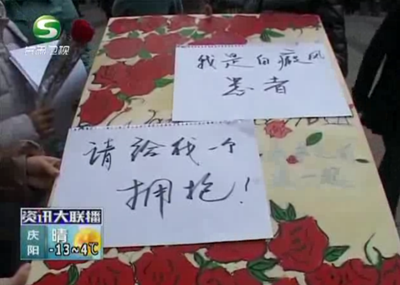 甘肃卫视
我是白癜风
患者
请给我一个
拥抱!
资讯大联播
庆阳
晴
-13~4℃